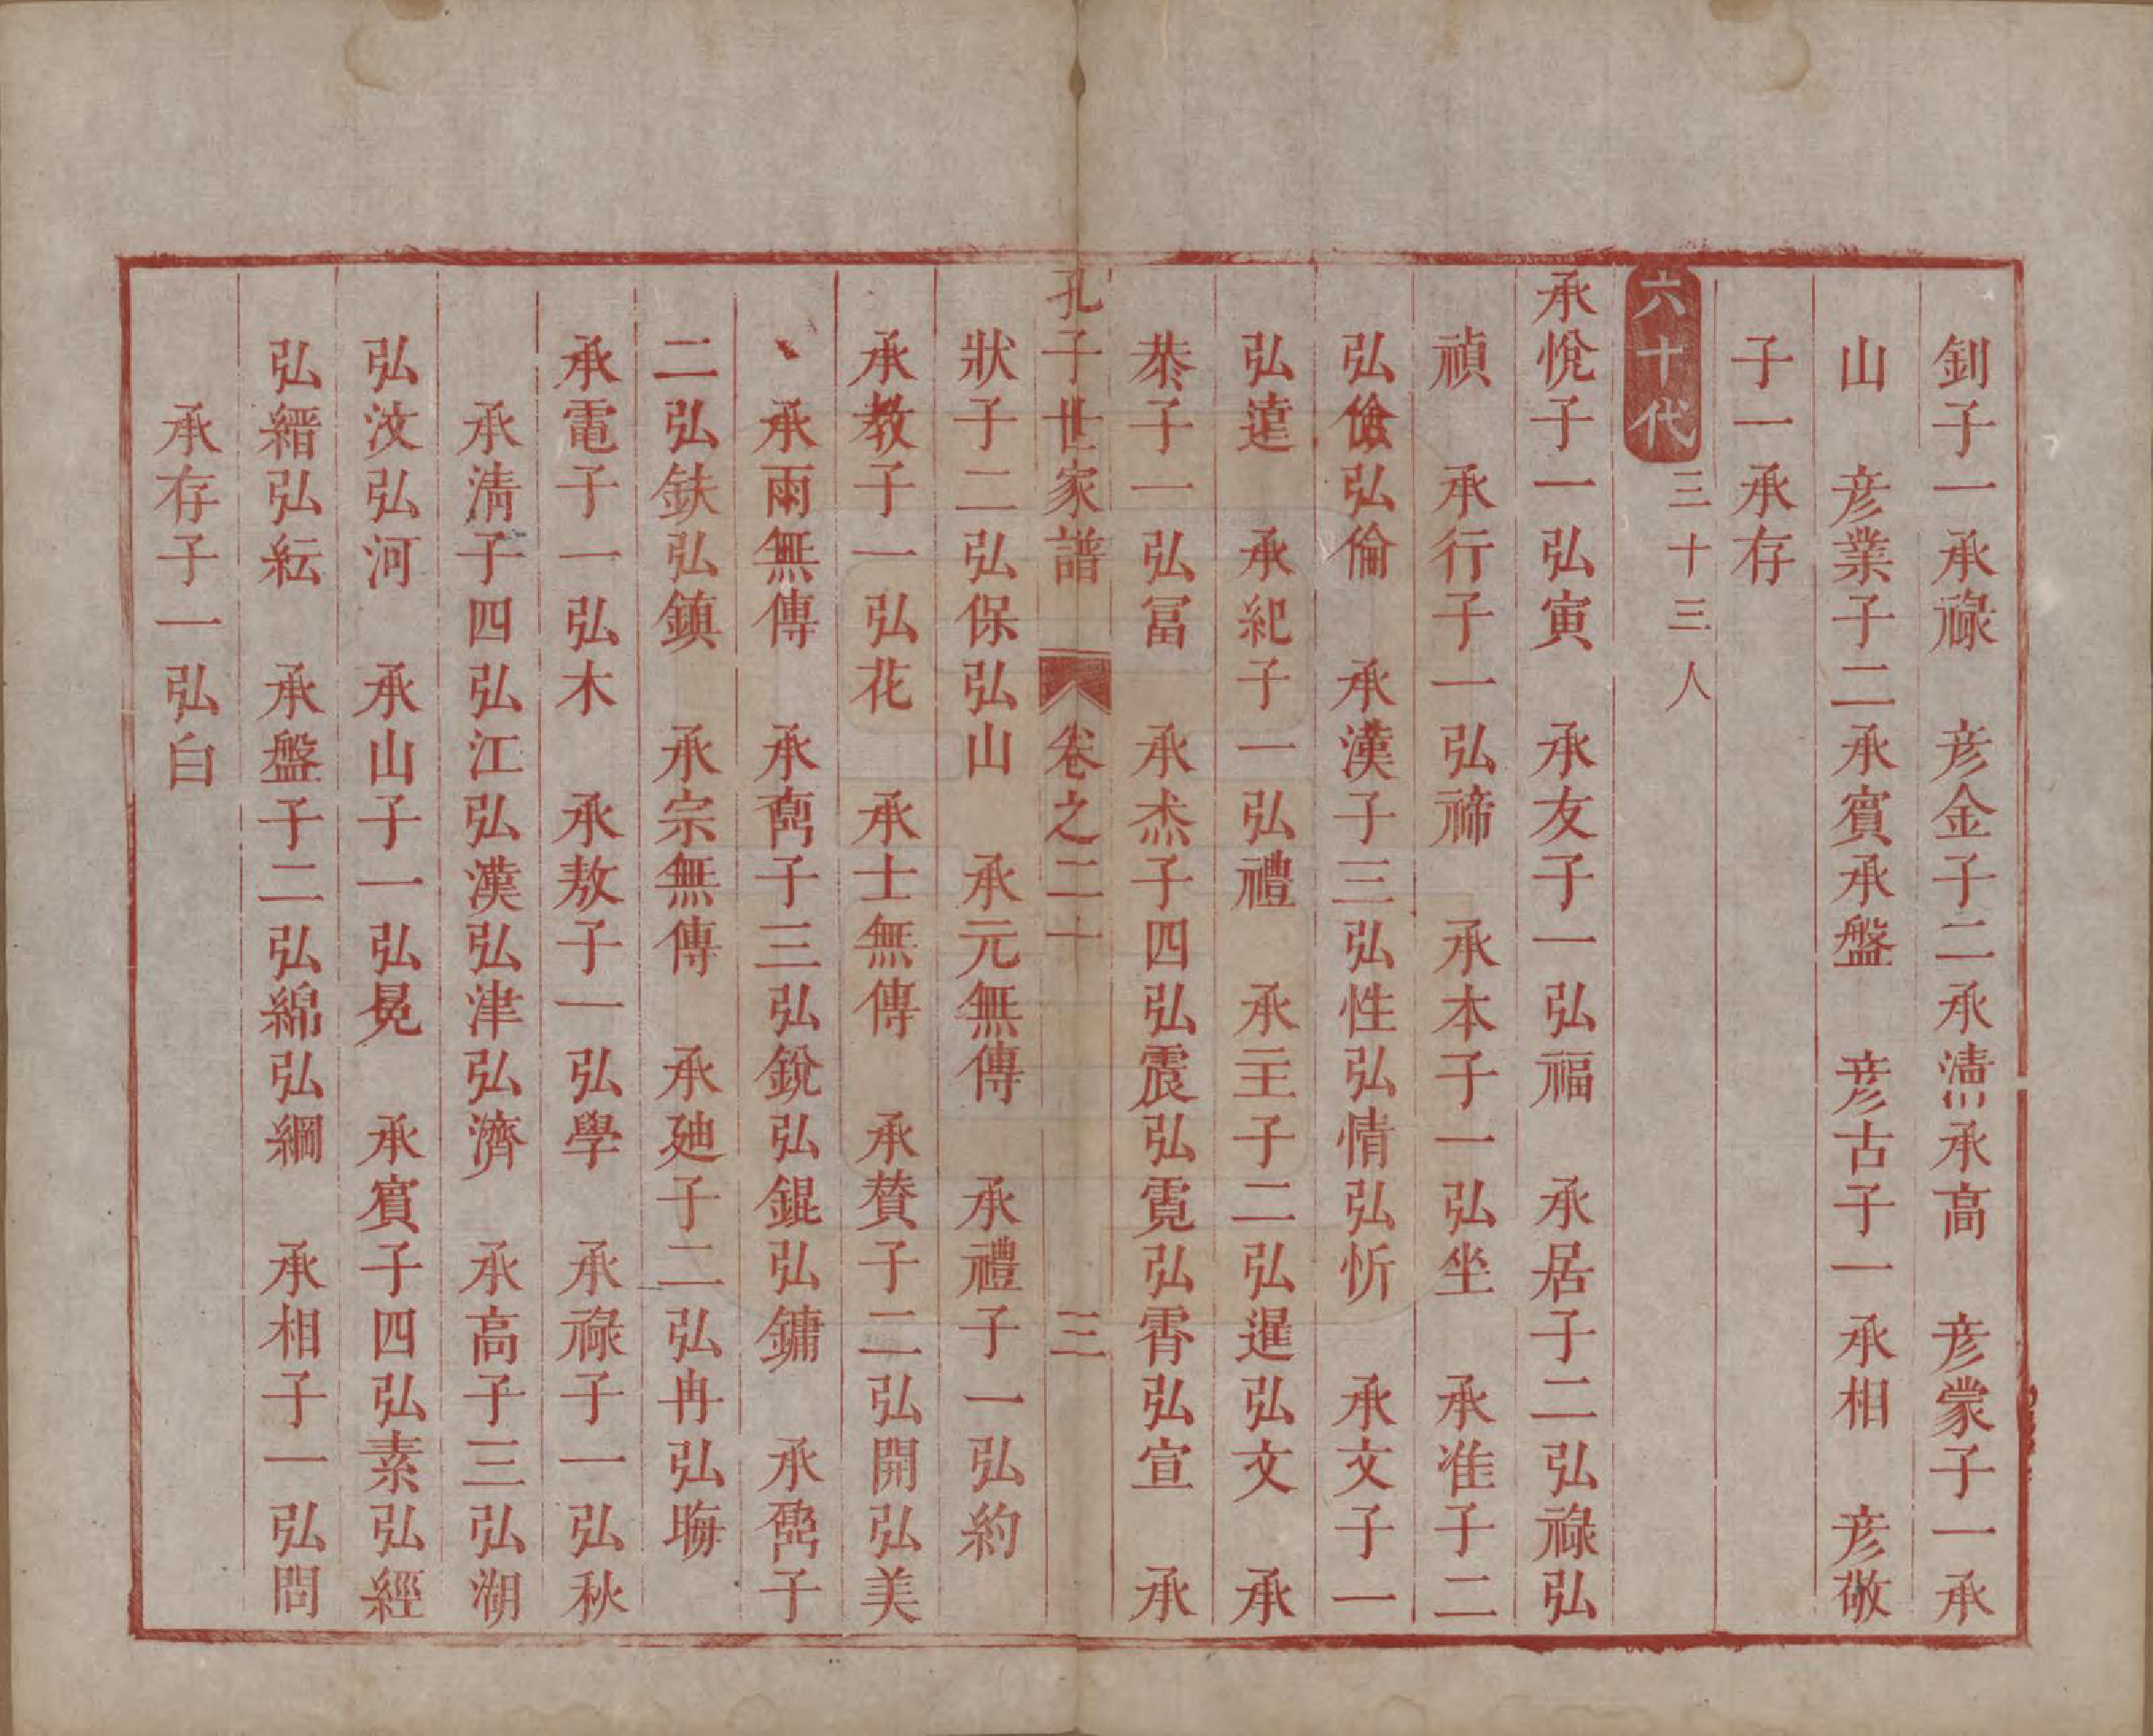 釗子一承祿　彦金子二承清承高　彦蒙子一承
山　彦業子二承賔承盤　彦古子一承相　彦敬
子一承存
六十代　三十三人
承悅子一弘寅　承友子一弘福　承居子二弘祿弘
禎　承行子一弘禘　承本子一弘坐　承准子二
弘儉弘倫　承漢子三弘性弘情弘忻　承文子一
弘達　承紀子一弘禮　承主子二弘暹弘文　承
恭子一弘冨　承杰子四弘震弘霓弘霄弘宣　承
孔子世家譜　卷之二十　三
狀子二弘保弘山　承元無傳　承禮子一弘約
承教子一弘花　承士無傳　承賛子二弘開弘美
承雨無傳　承子三弘銳弘錕弘鏞　承子
二弘鈇弘鎮　承宗無傳　承廸子二弘冉弘
承電子一弘木　承敖子一弘學　承祿子一弘秋
承清子四弘江弘漢弘津弘濟　承高子三弘湖
弘汶弘河　承山子一弘晃　承賔子四弘素弘經
弘縉弘紜　承盤子二弘綿弘綱　承相子一弘問
承存子一弘白